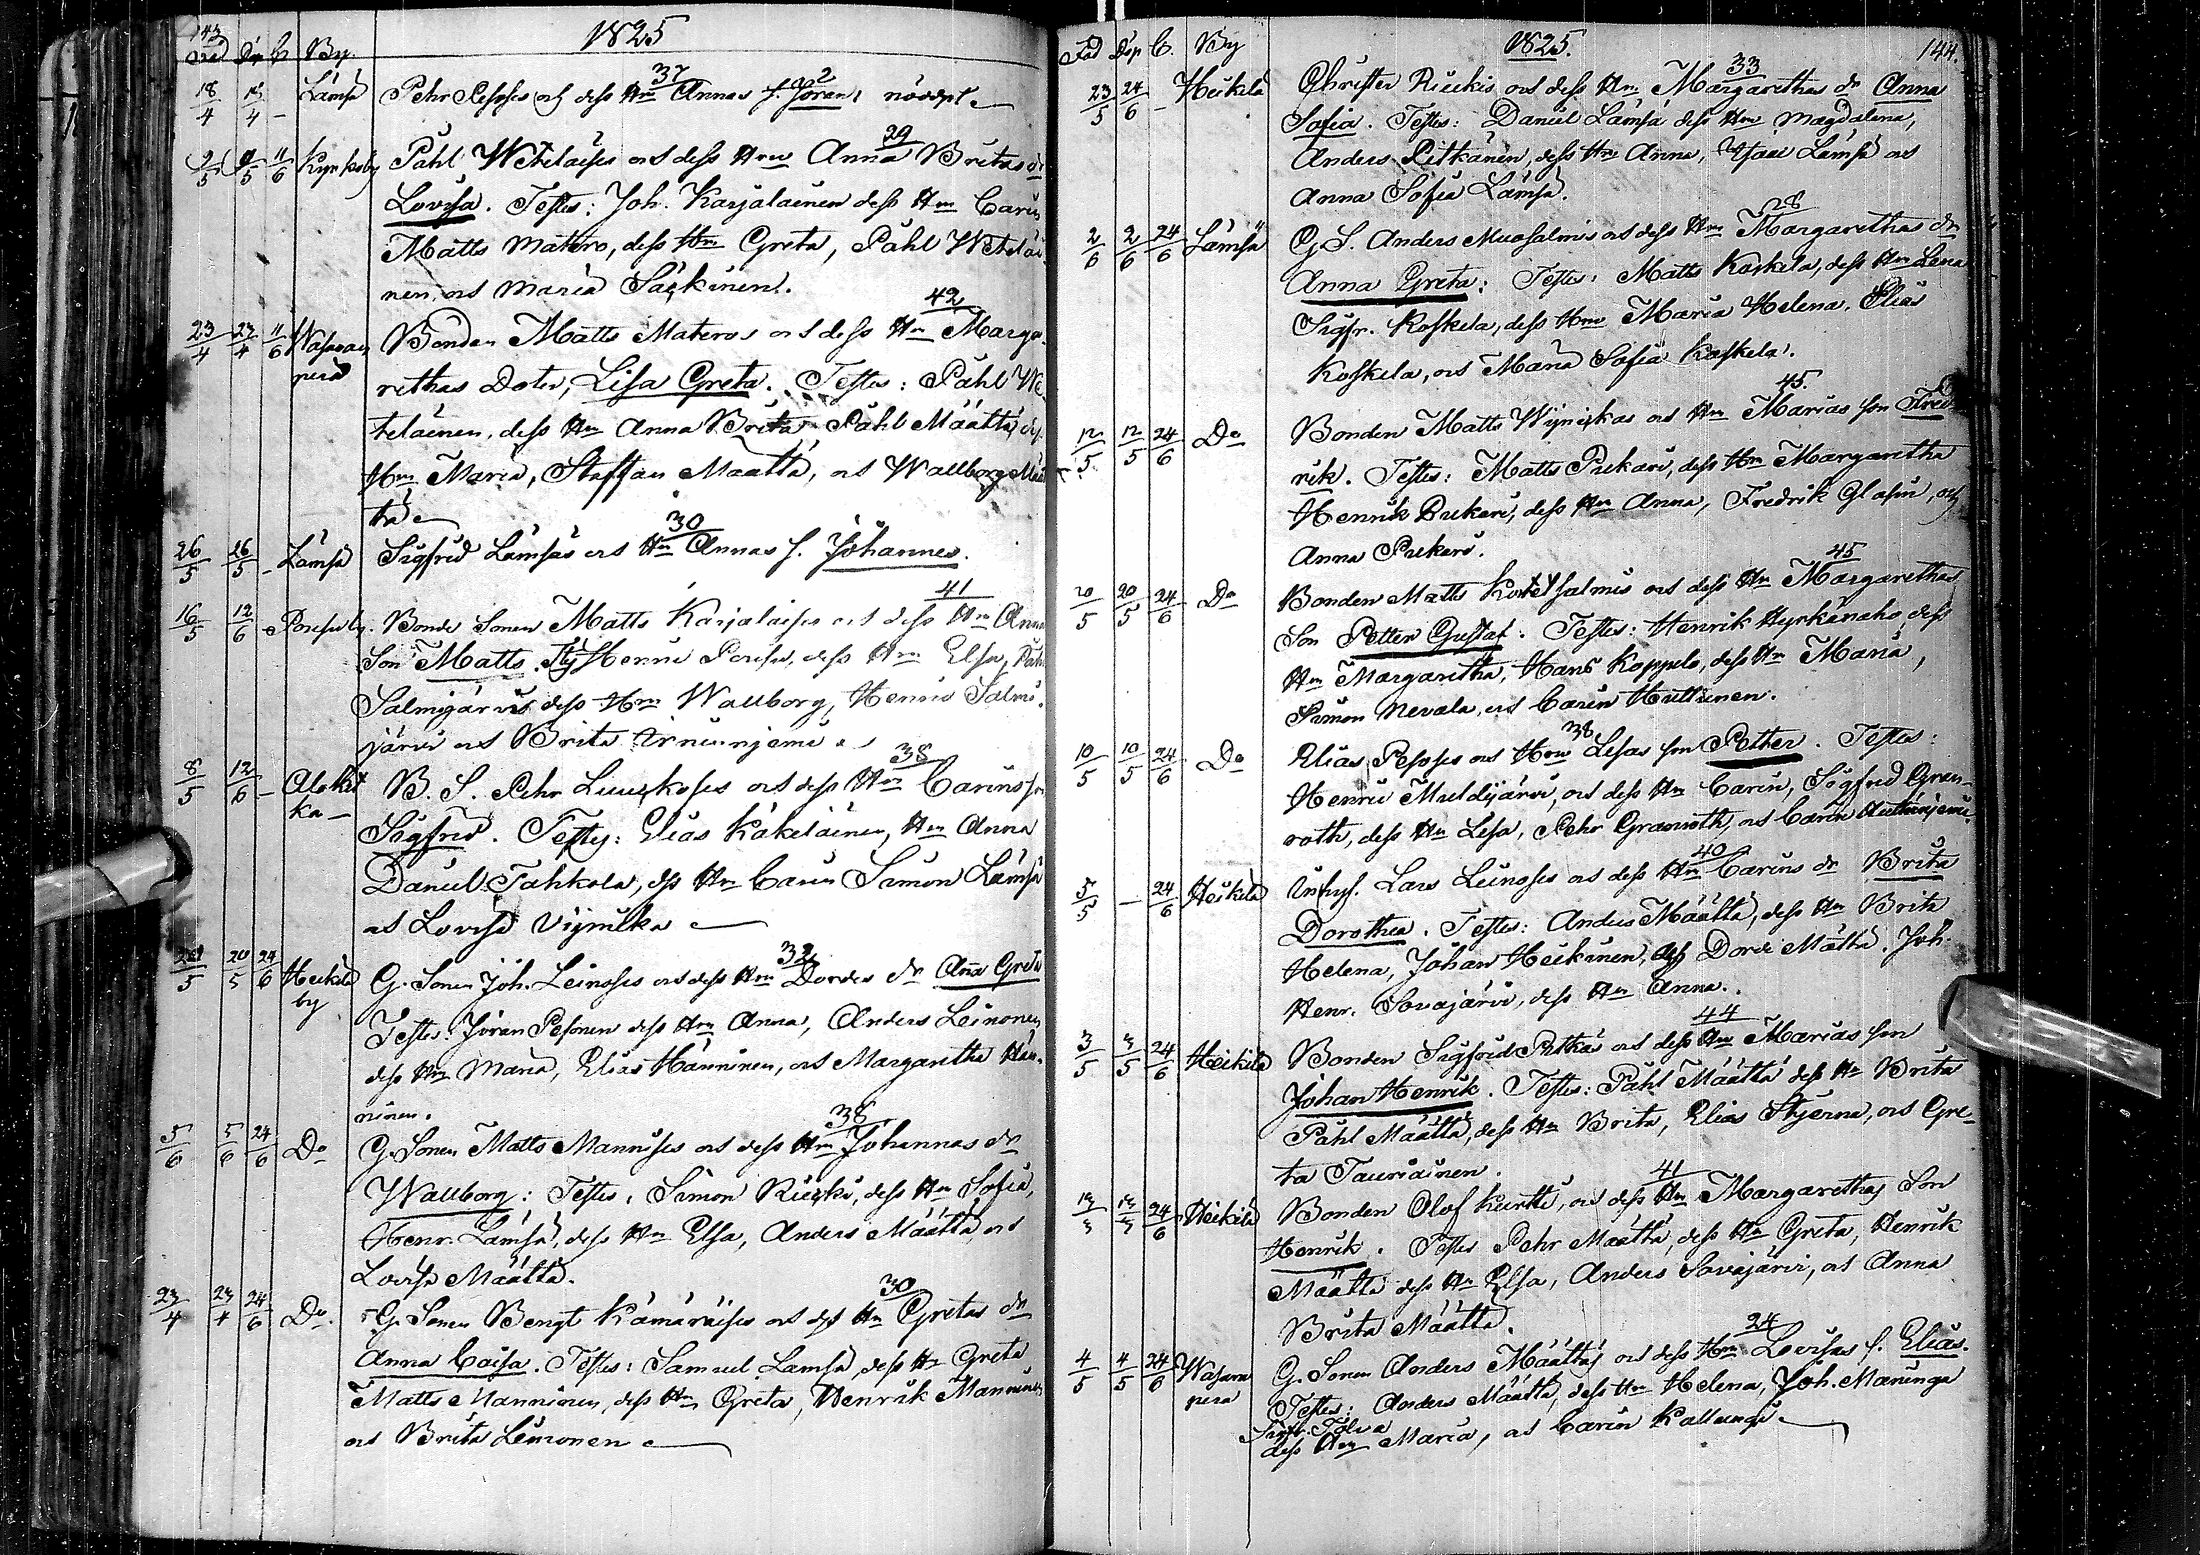 143
1825
Föd Döp C. By.
37 2
18/4 18/4 - Lämsä Pehr Pesoses och dess Hu Annas s. Jöran, nöddpt
29
2/5 2/5 11/6 Kyrkoby Påhl Wetelaises och dess Hru Anna Britas dr
Lovisa. Testes: Joh. Karjalainen dess Hru Carin
Matts Matero, dess Hru Greta, Påhl Weteläi
nen, och Maria Säckinen.
42
23/4 23/4 11/6 Wasara Bonden Matts Materos och dess Hru Marga
perä rethas Doter, Lisa Greta. Testes: Påhl We
teläinen, dess Hru Anna Brita Påhl Määttä, dess
Hru Maria, Staffan Määttä, och Wallborg Määt
tä
30
26/5 26/5 - Lämsä Sigfrid Lämsäs och Hru Annas s. Johannes.
41
16/5 12/6 - Posioby. Bonde Sonen Matts Karjalaises och dess Hru Anna
Son Matts. Henric Posio, dess Hru Elsa, Påhl
Salmijärvi dess Hru Wallborg, Henric Salmi
järvi och Brita
38
8/5 12/6 - Alakit B. S. Pehr Luuskoses och dess Hru Carins son
ka Sigfrid. Testes: Elias Käkeläinen, Hru Anna
Daniel Tahkola, dess Hru Carin Simon Lämsä
och Lovisa
32
20/5 20/5 24/6 Heikilä G. Sonen Joh. Leinoses och dess Hru Dordes dr Aña Greta
by Testes: Jöran Pesonen dess Hru Anna, Anders Leinonen
dess Hru Maria, Elias Hänninen, och Margaretha Hän
ninen.
38
5/6 5/6 24/6 Do G. Sonen Matts Mannises och dess Hru Johannas dr
Wallborg: Testes: Simon Riecki, dess Hru Sofia,
Henr. Lämsä, dess Hru Elsa, Anders Määttä, och
Lovisa Määttä.
30
23/4 23/4 24/6 Do. G. Sonen Bengt Kämäräises och dess Hru Gretas dr
Anna Caisa. Testes: Samuel Lämsä, dess Hru Greta
Matts Manninen, dess Hru Greta, Henrik Manninen
och Brita Leinonen
1825. 144.
Föd Döp C. By
33
23/5 24/6 - Heikilä Christer Rieckis och dess Hru Margarethas dr Anna
Sofia. Testes: Daniel Lämsä dess Hru Magdalena,
Anders Pitkänen, dess Hru Anna, Isaac Lämsä och
Anna Sofia Lämsä.
28
2/6 2/6 24/6 Lämsä G. S. Anders Muosalmis och dess Hru Margarethas dr
Anna Greta: Testes: Matts Koskela, dess Hru Lena
Sigfr. Koskela, dess Hru Maria Helena, Elias
Koskela, och Maria Sofia Koskela.
45.
12/5 12/5 24/6 Do Bonden Matts och Hru Marias son Fred
rik. Testes: Matts Pukari, dess Hru Margaretha
Henrik Pukari, dess Hru Anna, Fredrik Glasin, och
Anna Pukari.
45
20/5 20/5 24/6 Do Bonden Matts och dess Hru Margarethas
Son Petter Gustaf. Testes: Henrik Hyrkänaho, dess
Hru Margaretha, Hans Koppelo, dess Hru Maria,
Simon Nevala, och Carin Huttunen.
38
10/5 10/5 24/6 Do Elias Pesoses och Hru Lisas son Petter. Testes:
Henric Muldijärvi, och dess Hru Carin, Sigfrid Gran-
roth, dess Hru Lisa, Pehr Granroth, och Carin
40
5/5 - 24/6 Heikilä Inhys. Lars Leinoses och dess Hru Carins dr Brita
Dorothea. Testes: Anders Määttä, dess Hru Brita
Helena, Johan Heikinen, och Dorde Määttä. Joh.
Henr. Sovajärvi, dess Hru Anna.
44
3/5 3/5 24/6 Heikilä Bonden Sigfrid Pitkäs och dess Hru Marias son
Johan Henrik. Testes: Påhl Määttä dess Hru Brita
Påhl Määttä, dess Hru Brita, Elias Stjerna, och Gre-
ta Tauriainen.
41
24/6 Heikilä Bonden Olof Kurtti, och dess Hru Margarethas Son
Henrik. Testes Pehr Määttä, dess Hru Greta, Henrik
Määttä dess Hru Elsa, Anders Sovajärvi, och Anna
Brita Määttä.
24
4/5 4/5 24/6 Wasara G. Sonen Anders Määttäs och dess Hru Lovisas s. Elias.
perä Testes: Anders Määttä, dess Hru Helena, Joh. Maninga
dess Hru Maria, och Carin Kallungi